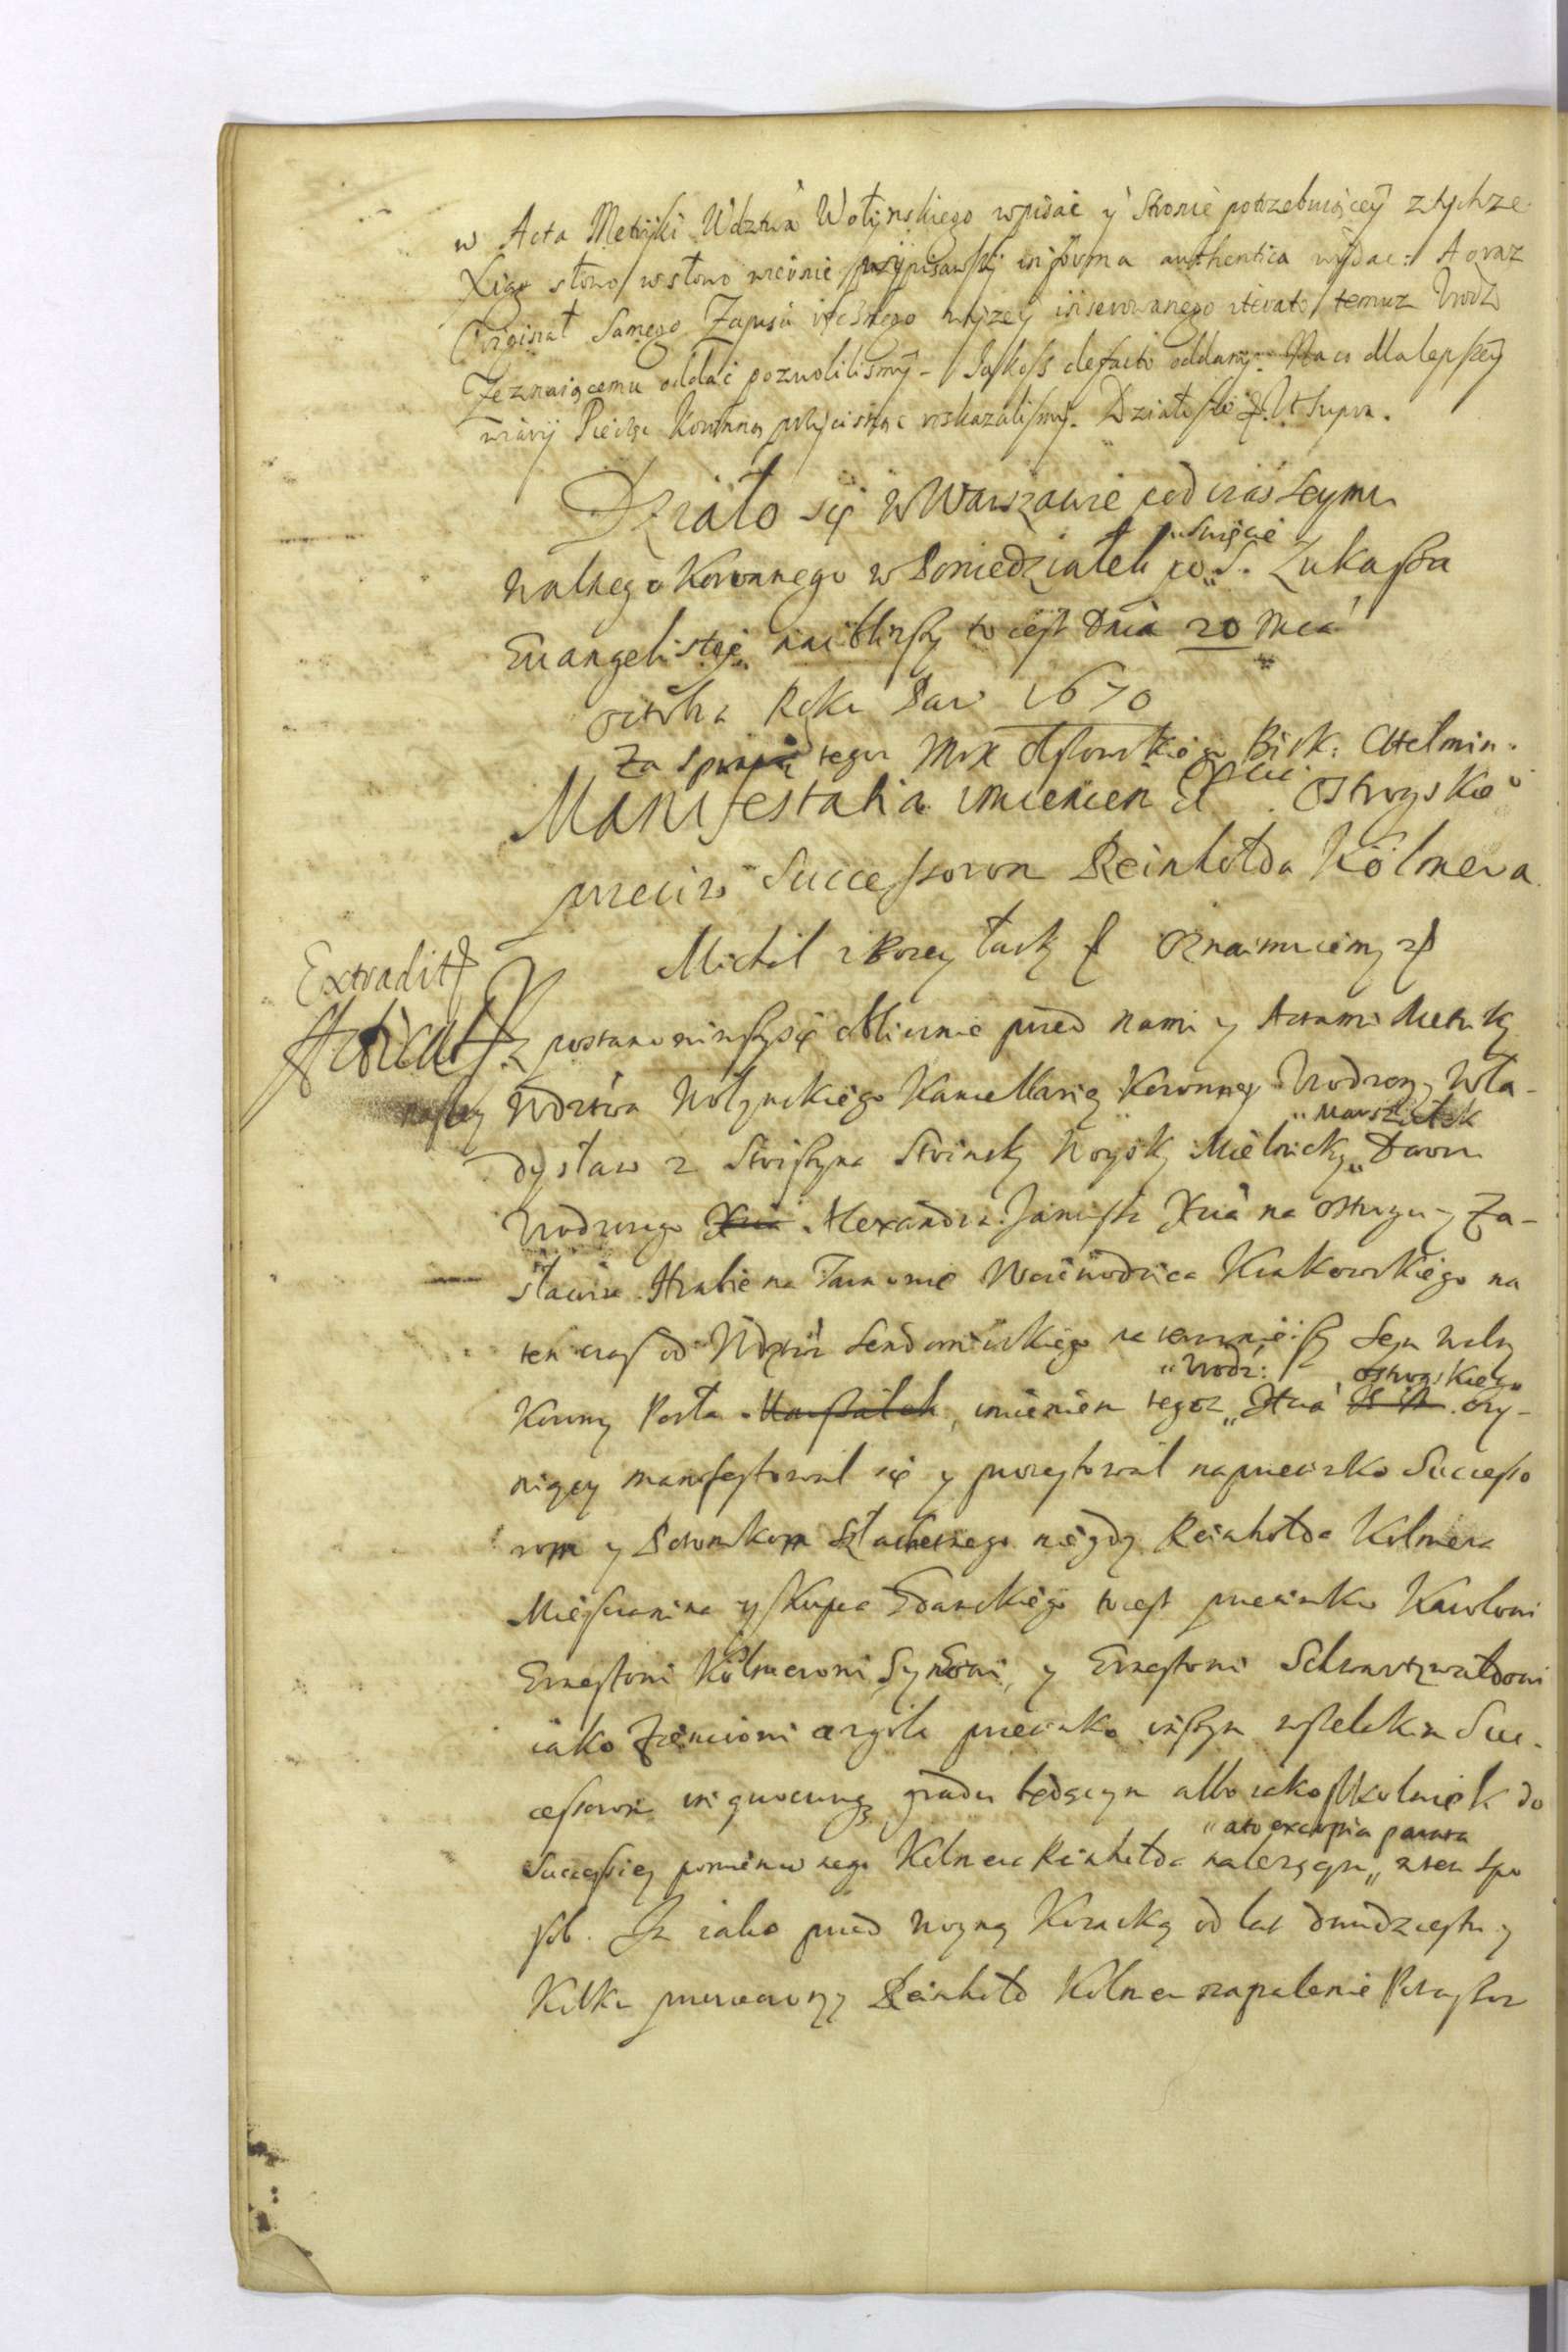 w Acta Metryki Wdztwa Wołynskiego wpisać y Stronie potrzebuiącey ztychze
Xiąg słowo w słowo wiernie przypisawszy in forma authentica wydac: A oraz
Original Samego Zapisu wyzey inserowanego temuz Urodz
Zeznaiącemu oddać pozwolilismy - Jakosz defacto oddany. Na co dla lepszey
wiary Pieczęc Koronną przycisnąc roskazalismy. Działo sie &. Ut Supra.
Działo się w Warszawie pod czas Seymu
walnego Koronnego w Poniedziałek po „Swięcie S. Łukasza
Ewangelistę naibliszy to iest Dnia 20 Mca
Octobra Roku Pan 1670
Za tegoz Olszowskiego Bisk: Chelmin.
Manifestatia imieniem Ostrogskie°
przeciw Successorom Reinholda Kölmera
Michał z Bozey łaski & Oznaimuiemy &
Extradit
Iz postanowiwszy się oblicznie przed nami y Actami Metryki
naszey Wdztwa Wołynskiego Kancellariey Koronney Urodzony Wła-
dysław z Strinsky Woysky Mielnicky „Marszałek Dworu
Urodzonego Xcia Alexandra Janusza Xcia na Ostrogu y Za-
sławiu Hrabie na Tarnowie Woiewodzica Krakowskiego na
ten czas od Wdztwa Sendomirskiego na teraznieiszy Seym walny
Koronny Posła Marszałek, imieniem tegoz „Urodz: Xcia Ostrogskiego czy-
niący manifestował się y protestował naprzeciwko Successo
rom y Potomkom Szlachetnego niegdy Reinholda Kolmera
Mieszczanina y Kupca Gdanskiego to iest przeciwko Karolowi
Ernestowi Kölmerowi Synowi, y Ernestowi Schwartzwaldowi
iako Zięciowi azgoła przeciwko inszym wszelakim Suc-
cessorom in quocunq gradu będącym albo iakoszkolwiek do
Successiey pomienionego Kolmera Reinholda nalezącym „ a to ex copia parata w ten spo
sob. Iz iako przed woyną Kozacką od lat dwudziestu y
Kilku Reinhold Kolmer na palenie Potaszow